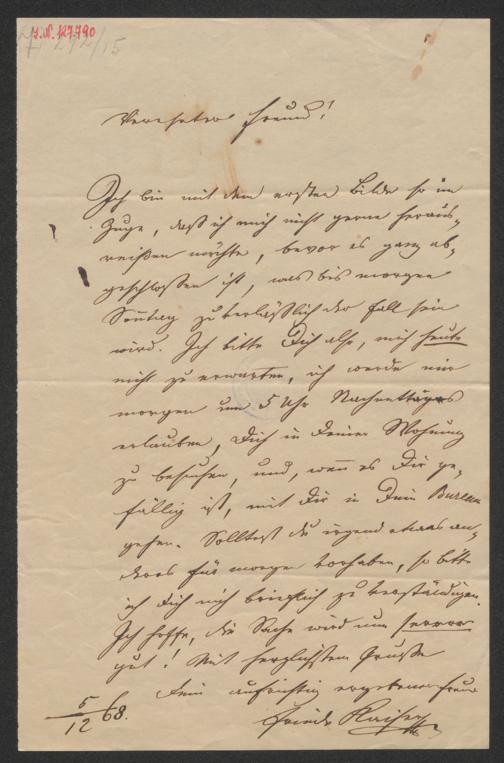 J.N. 127.790
Verehrter Freund!
Ich bin mit dem ersten Bilde so im
Zuge, daß ich mich nicht gerne heraus-
reißen möchte, bevor es ganz ab-
geschlossen ist, was bis morgen
Sonntag zuverläßlich der Fall sein
wird. Ich bitte Dich also, mich heute
nicht zu erwarten, ich werde mir
morgen um 5 Uhr Nachmittags
erlauben, Dich in Deiner Wohnung
zu besuchen, und, wenn es Dir ge-
fällig ist, mit Dir in Dein Bureau
gehen. Solltest du irgend etwas an-
deres für morgen vorhaben, so bitte
ich Dich mich brieflich zu verständigen.
Ich hoffe, die Sache wird nun
gut! Mit herzlichstem Gruße
Dein aufrichtig ergebener Freund
5/12 68.
Friedr Kaiser